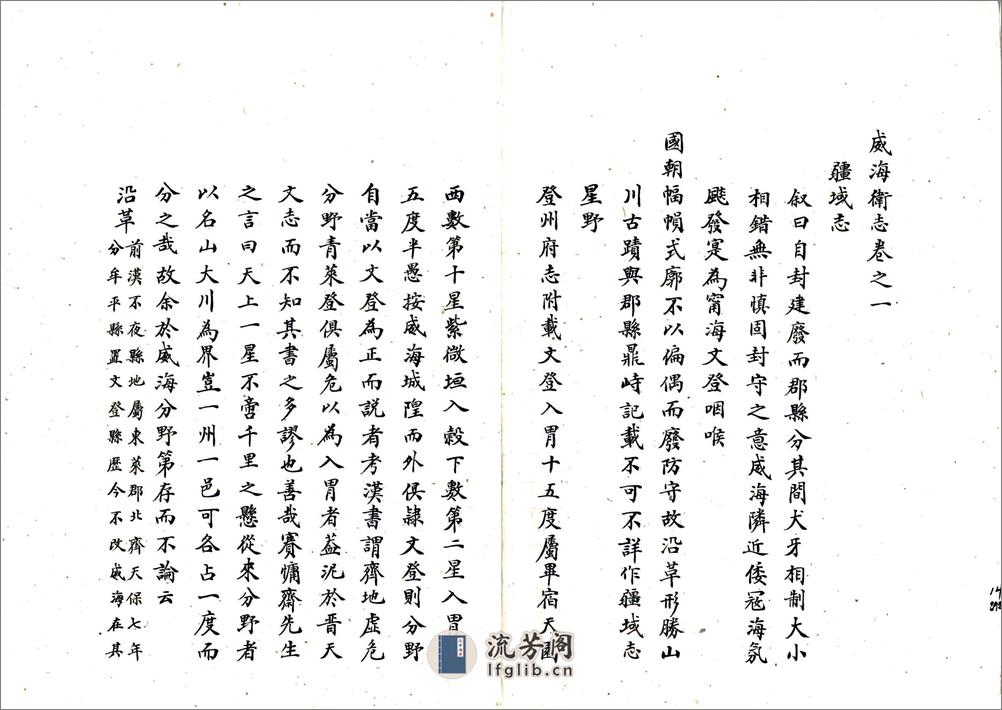 威海衛志卷之一
疆域志
叙曰自封建廢而郡縣分其間犬牙相制大小
相錯無非慎固封守之意威海隣近倭冦海氛
颷發寔為甯海文登咽喉
國朝幅帽式廓不以偏偶而廢防守故沿革形勝山
川古蹟與郡縣鼎峙記載不可不詳作疆域志
星野
登州府志附載文登入胃十五度屬畢宿天園
西數第十星紫微垣入殼下數第二星入胃
五度半愚按威海城隍而外俱隷文登則分野
自當以文登為正而説者考漢書謂齊地虛危
分野青萊登俱屬危以為入胃者葢泥於晋天
文志而不知其書之多謬也善哉賽慵齋先生
之言曰天上一星不啻千里之懸從來分野者
以名山大川為界豈一州一邑可各占一度而
分之哉故余於威海分野第存而不論云
沿革
前漢不夜縣地屬東萊郡北齊天保七年
分牟平縣置文登縣歷今不改威海在其
流芳阁
lfglib.cn